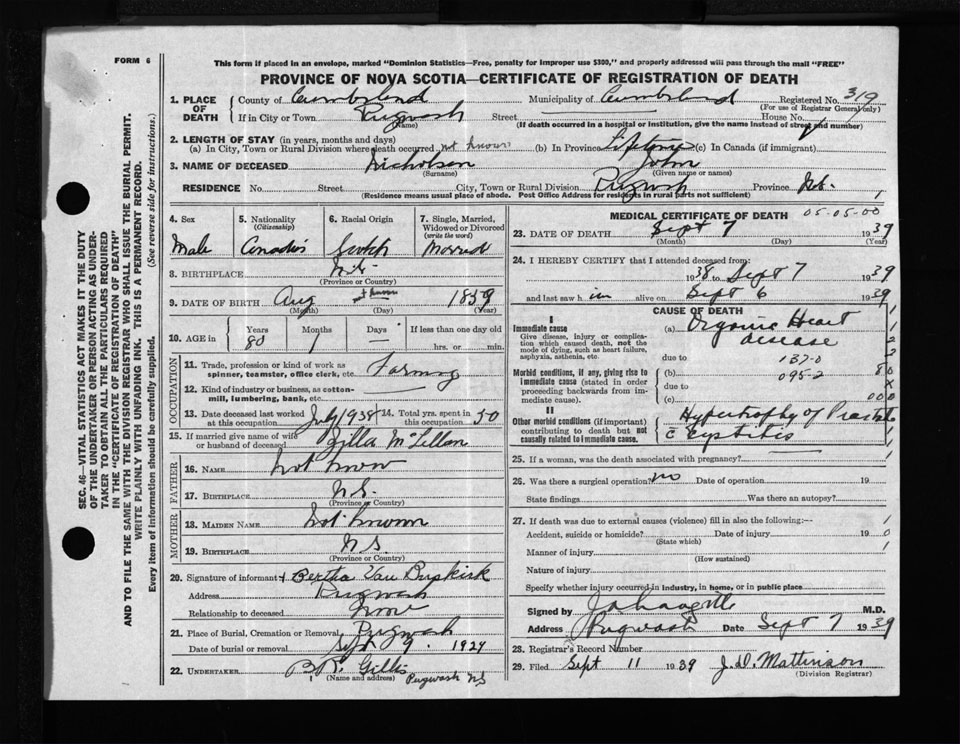 FORM 6
This form if placed in an envelope, marked "Dominion Statistics—Free, penalty for improper use $300," and properly addressed will pass through the mail "FREE"
PROVINCE OF NOVA SCOTIA—CERTIFICATE OF REGISTRATION OF DEATH
1. PLACE OF DEATH County of Cumberland Municipality of Cumberland Registered No. 319
(For use of Registrar General only)
If in City or Town Pugwash Street House No.
(Name) (If death occurred in a hospital or institution, give the name instead of street and number)
2. LENGTH OF STAY (in years, months and days)
(a) In City, Town or Rural Division where death occurred not known (b) In Province Lifetime (c) In Canada (if immigrant)
3. NAME OF DECEASED Nicholson John
(Surname) (Given name or names)
RESIDENCE No. Street City, Town or Rural Division Pugwash Province N.S. 1
(Residence means usual place of abode. Post Office Address for residents in rural parts not sufficient)
4. Sex Male
5. Nationality (Citizenship) Canadian
6. Racial Origin Scotch
7. Single, Married, Widowed or Divorced (write the word) Married
8. BIRTHPLACE N.S.
(Province or Country)
9. DATE OF BIRTH Aug not known 1859
(Month) (Day) (Year)
10. AGE in Years 80 Months 1 Days — If less than one day old
hrs. or min.
OCCUPATION
11. Trade, profession or kind of work as spinner, teamster, office clerk, etc. Farming
12. Kind of industry or business, as cotton-mill, lumbering, bank, etc.
13. Date deceased last worked at this occupation July 1938 14. Total yrs. spent in this occupation 50
15. If married give name of wife or husband of deceased Zilla McLellan
FATHER
16. NAME not know
17. BIRTHPLACE N.S.
(Province or Country)
MOTHER
18. MAIDEN NAME not known
19. BIRTHPLACE N.S.
(Province or Country)
20. Signature of informant Bertha Van Buskirk
Address Pugwash
Relationship to deceased none
21. Place of Burial, Cremation or Removal Pugwash
Date of burial or removal Sept 9. 1939
22. UNDERTAKER B.R. Gillis
(Name and address) Pugwash N.S
MEDICAL CERTIFICATE OF DEATH 05-05-00
23. DATE OF DEATH Sept 7 1939
(Month) (Day) (Year)
24. I HEREBY CERTIFY that I attended deceased from:
1938 to Sept 7 1939
and last saw h im alive on Sept 6 1939
CAUSE OF DEATH
I
Immediate cause
Give disease, injury or complication which caused death, not the mode of dying, such as heart failure, asphyxia, asthenia, etc.
(a) Organic Heart disease
due to 137-0
Morbid conditions, if any, giving rise to immediate cause (stated in order proceeding backwards from immediate cause).
(b) 095-2
due to
(c)
II
Other morbid conditions (if important) contributing to death but not causally related to immediate cause.
Hypertrophy of Prostate
c Cystitis
25. If a woman, was the death associated with pregnancy?
26. Was there a surgical operation? no Date of operation 19
State findings Was there an autopsy?
27. If death was due to external causes (violence) fill in also the following:—
Accident, suicide or homicide? Date of injury 19
(State which)
Manner of injury
(How sustained)
Nature of injury
Specify whether injury occurred in industry, in home, or in public place
Signed by M.D.
Address Pugwash Date Sept 7 1939
28. Registrar's Record Number
29. Filed Sept 11 1939 J.D. Mattinson
(Division Registrar)
SEC. 46—VITAL STATISTICS ACT MAKES IT THE DUTY
OF THE UNDERTAKER OR PERSON ACTING AS UNDER-
TAKER TO OBTAIN ALL THE PARTICULARS REQUIRED
IN THE "CERTIFICATE OF REGISTRATION OF DEATH"
AND TO FILE THE SAME WITH THE DIVISION REGISTRAR WHO SHALL ISSUE THE BURIAL PERMIT.
WRITE PLAINLY WITH UNFADING INK. THIS IS A PERMANENT RECORD.
Every item of information should be carefully supplied. (See reverse side for instructions.)